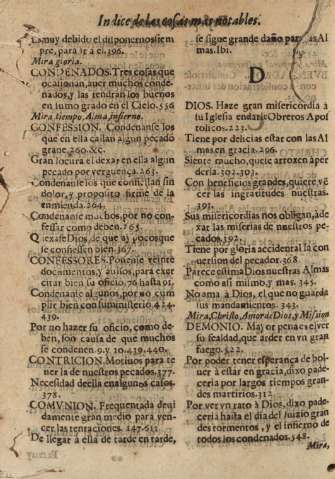 Indice de las cosas mas notables.
Es muy debido el disponernos siem
pre, para ir a el. 396.
Mira gloria.
CONDENADOS. Tres cosas que
ocasionan, aver muchos conde-
nados, y las tendràn los buenos
en sumo grado en el Cielo. 556
Mira tiempo, Alma, infierno.
CONFESSION. Condenanse los
que en ella callan algun pecado
grave. 260. &c.
Gran locura el dexar en ella algun
pecado por verguença. 263.
Condenanse los que confiessan sin
dolor, y proposito firme de la
enmienda. 264.
Condenanse muchos, por no con-
fessar como deben. 265.
Quexase Dios, de que ay pocos que
se confiessen bien. 367.
CONFESSORES. Ponense veinte
documentos, y avisos, para exer
citar bien su oficio. 76 hasta 91.
Condenanse algunos, por no cum
plir bien con su ministerio 424.
439.
Por no hazer su oficio, como de-
ben, son causa de que muchos
se condenen. 9. y 10. 439. 440.
CONTRICION. Motivos para te
ner la de nuestros pecados. 377.
Necesidad de ella en algunos casos.
378.
COMVNION. Frequentada devi
damente gran medio para ven-
cer las tentaciones. 147. 611.
De llegar à ella de tarde en tarde,
se sigue grande daño para las Al
mas. Ibi.
D
DIOS. Haze gran misericordia à
su Iglesia en darle Obreros Apos
tolicos. 223.
Tiene por delicias estar con las Al
mas en gracia. 296.
Siente mucho, que le arrojen à per
derla. 302. 303.
Con beneficios grandes, quiere vé
cer las ingratitudes nuestras.
391.
Sus misericordias nos obligan, à do
xar las miserias de nuestros pe-
cados. 392.
Tiene por gloria accidental la con
version del pecador. 368.
Parece estima Dios nuestras Almas
como asi mismo, y mas. 345.
No ama à Dios, el que no guarda
sus mandamientos. 343.
Mira, Christo, Amor de Dios, y Mission
DEMONIO. Mayor pena es el ver
su fealdad, que arder en vn gran
fuego. 522.
Por poder tener esperança de bol-
uer à estar en gracia, dixo pade-
ceria por largos tiempos gran-
des martirios. 312.
Por ver vn rato à Dios, dixo pade-
ceria hasta el dia del Iuizio gran
des tormentos, y el infierno de
todos los condenados. 548.
Mira,